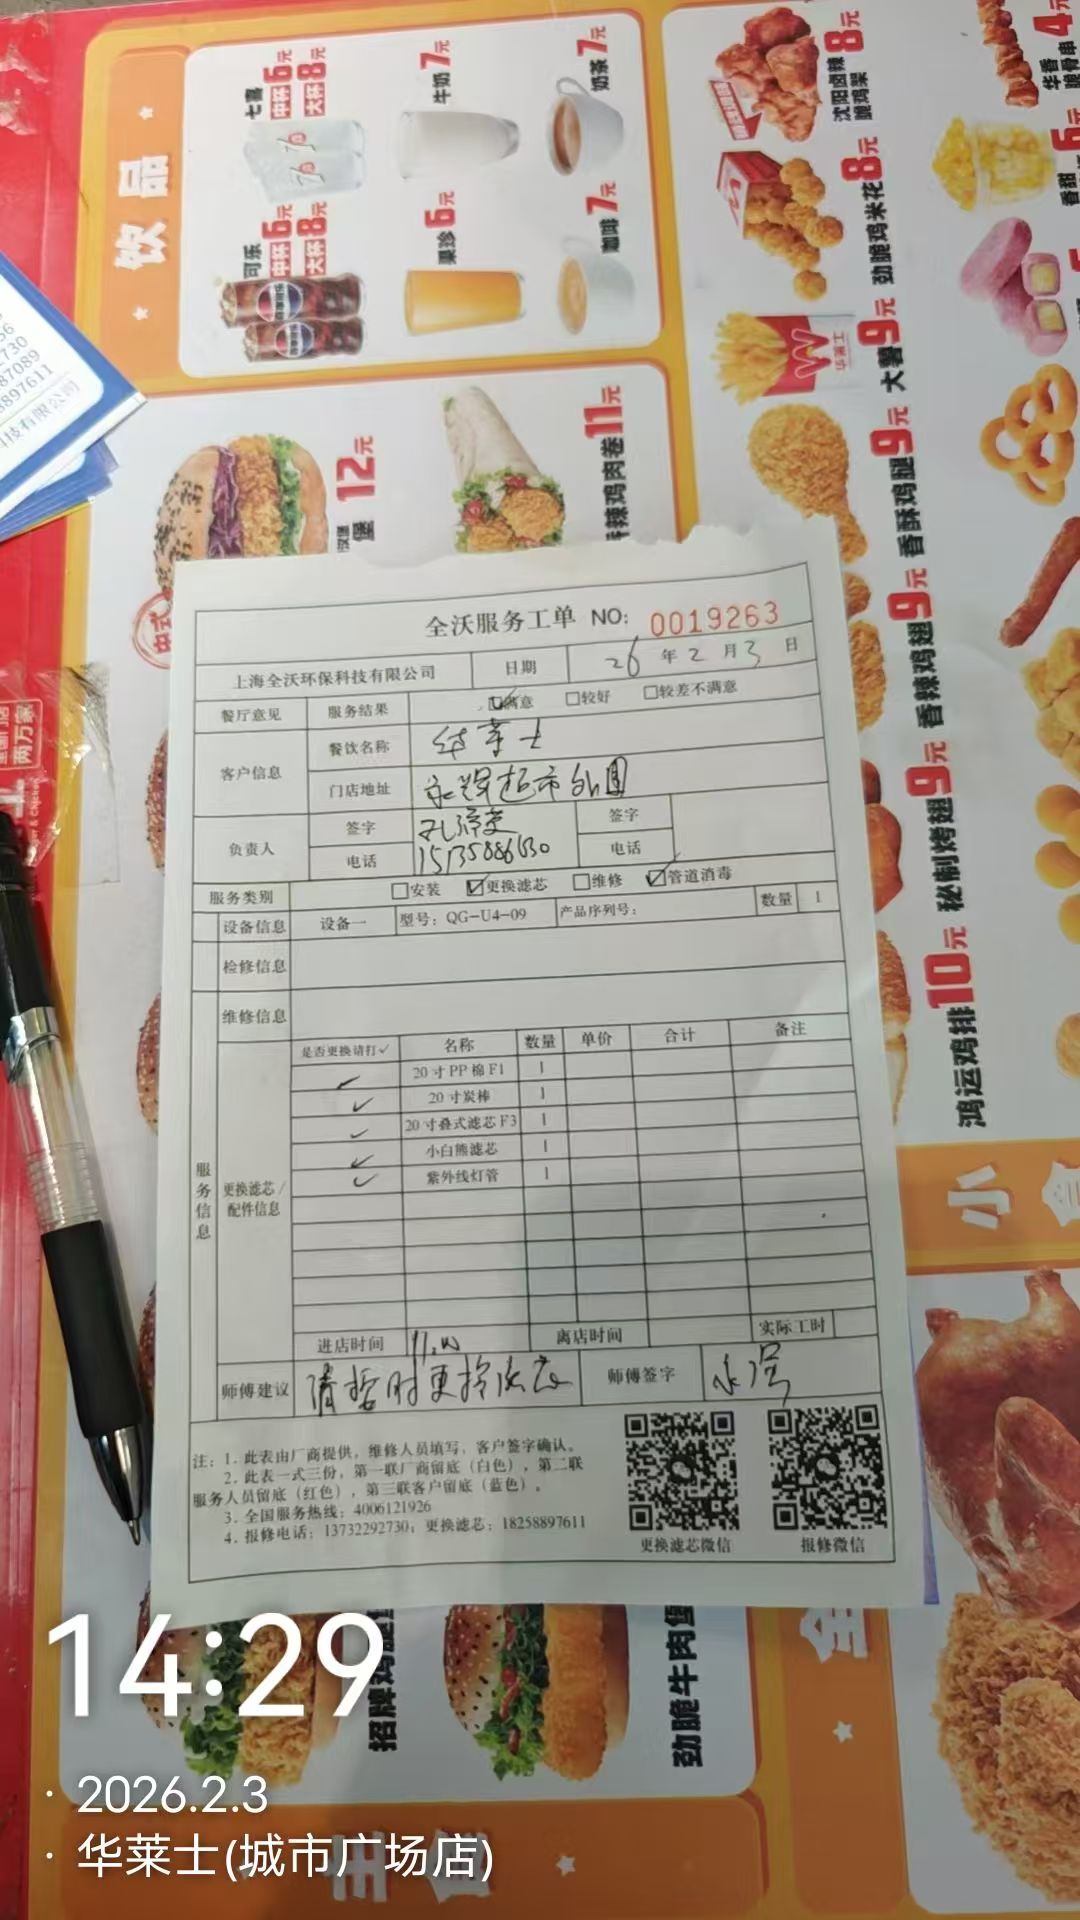 饮品
七喜
中杯6元
大杯8元
牛奶7元
奶茶7元
可乐
中杯6元
大杯8元
果珍6元
咖啡7元
12元
辣鸡肉卷11元
沈阳卤辣
脆鸡架
8元
劲脆鸡米花8元
大薯9元
香酥鸡腿9元
香辣鸡翅9元
秘制烤翅9元
鸿运鸡排10元
华香
脆骨串
4元
香甜
6元
两万家
56
2730
87089
8897611
科技有限公司
全沃服务工单 NO: 0019263
上海全沃环保科技有限公司 日期 26年2月3日
餐厅意见 服务结果 ☑满意 □较好 □较差不满意
客户信息 餐饮名称 华莱士
门店地址 永辉超市外围
负责人 签字 签字
电话 15135886630 电话
服务类别 □安装 ☑更换滤芯 □维修 ☑管道消毒
设备信息 设备一 型号：QG-U4-09 产品序列号： 数量 1
检修信息
维修信息
服务信息
更换滤芯/
配件信息
是否更换请打✓ 名称 数量 单价 合计 备注
✓ 20寸PP棉F1 1
✓ 20寸炭棒 1
✓ 20寸叠式滤芯F3 1
✓ 小白熊滤芯 1
✓ 紫外线灯管 1
进店时间 离店时间 实际工时
师傅建议 请暂时更换滤芯 师傅签字 永强
注：1. 此表由厂商提供，维修人员填写，客户签字确认。
2. 此表一式三份，第一联厂商留底（白色），第二联
服务人员留底（红色），第三联客户留底（蓝色）。
3. 全国服务热线：4006121926
4. 报修电话：13732292730；更换滤芯：18258897611
更换滤芯微信 报修微信
招牌鸡腿
劲脆牛肉堡
小
主
14:29
· 2026.2.3
· 华莱士(城市广场店)